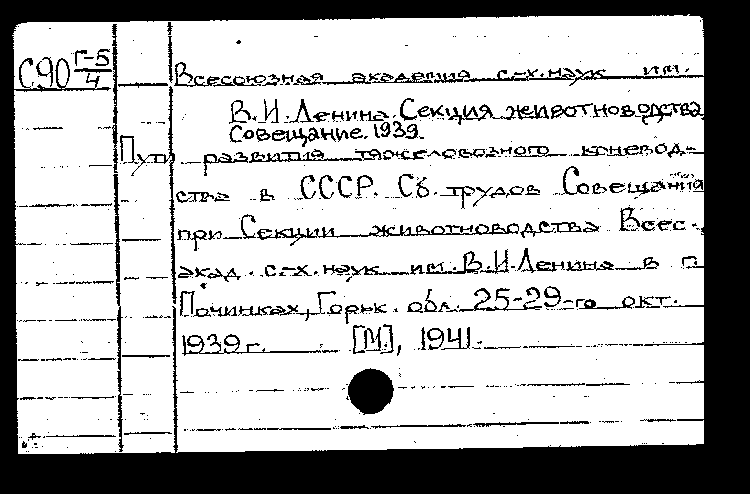 С90 Г-5/4
Всесоюзная академия с.-х. наук им.
В.И.Ленина. Секция животноводства
Совещание. 1939.
Пути развития тяжеловозного коневод-
ства в СССР. Сб. трудов Совещания
при Секции животноводства Всес.
акад. с.-х. наук им. В.И.Ленина в п.
Починках, Горьк. обл. 25-29-го окт.
1939 г. [М.], 1941.